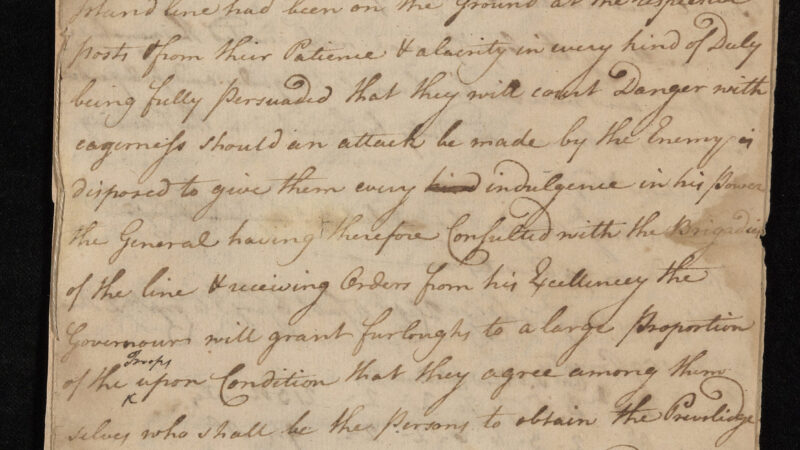 line had been on the Ground at the respective
posts & from their Patience & alairity in every kind of Duty
being fully Persuaded that they will court Danger with
eagerness should an attack be made by the Enemy is
disposed to give them every kind indulgence in his Power
the General having therefore Consulted with the Brigadier
of the line & receiving Orders from his Excellencey the
Governours will grant furloughs to a large Proportion
of the Troops upon Condition that they agree among them
selves who shall be the Persons to obtain the Previlidge